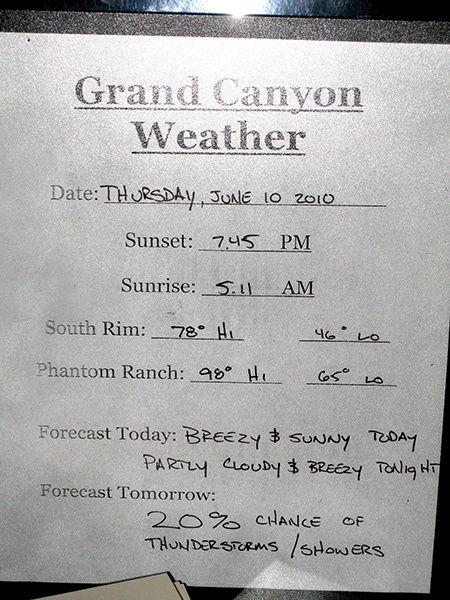 Grand Canyon
Weather
Date: THURSDAY, JUNE 10 2010
Sunset: 7.45 PM
Sunrise: 5.11 AM
South Rim: 78° HI 46° LO
Phantom Ranch: 98° HI 65° LO
Forecast Today: BREEZY & SUNNY TODAY
PARTLY CLOUDY & BREEZY TONIGHT
Forecast Tomorrow:
20% CHANCE OF
THUNDERSTORMS / SHOWERS